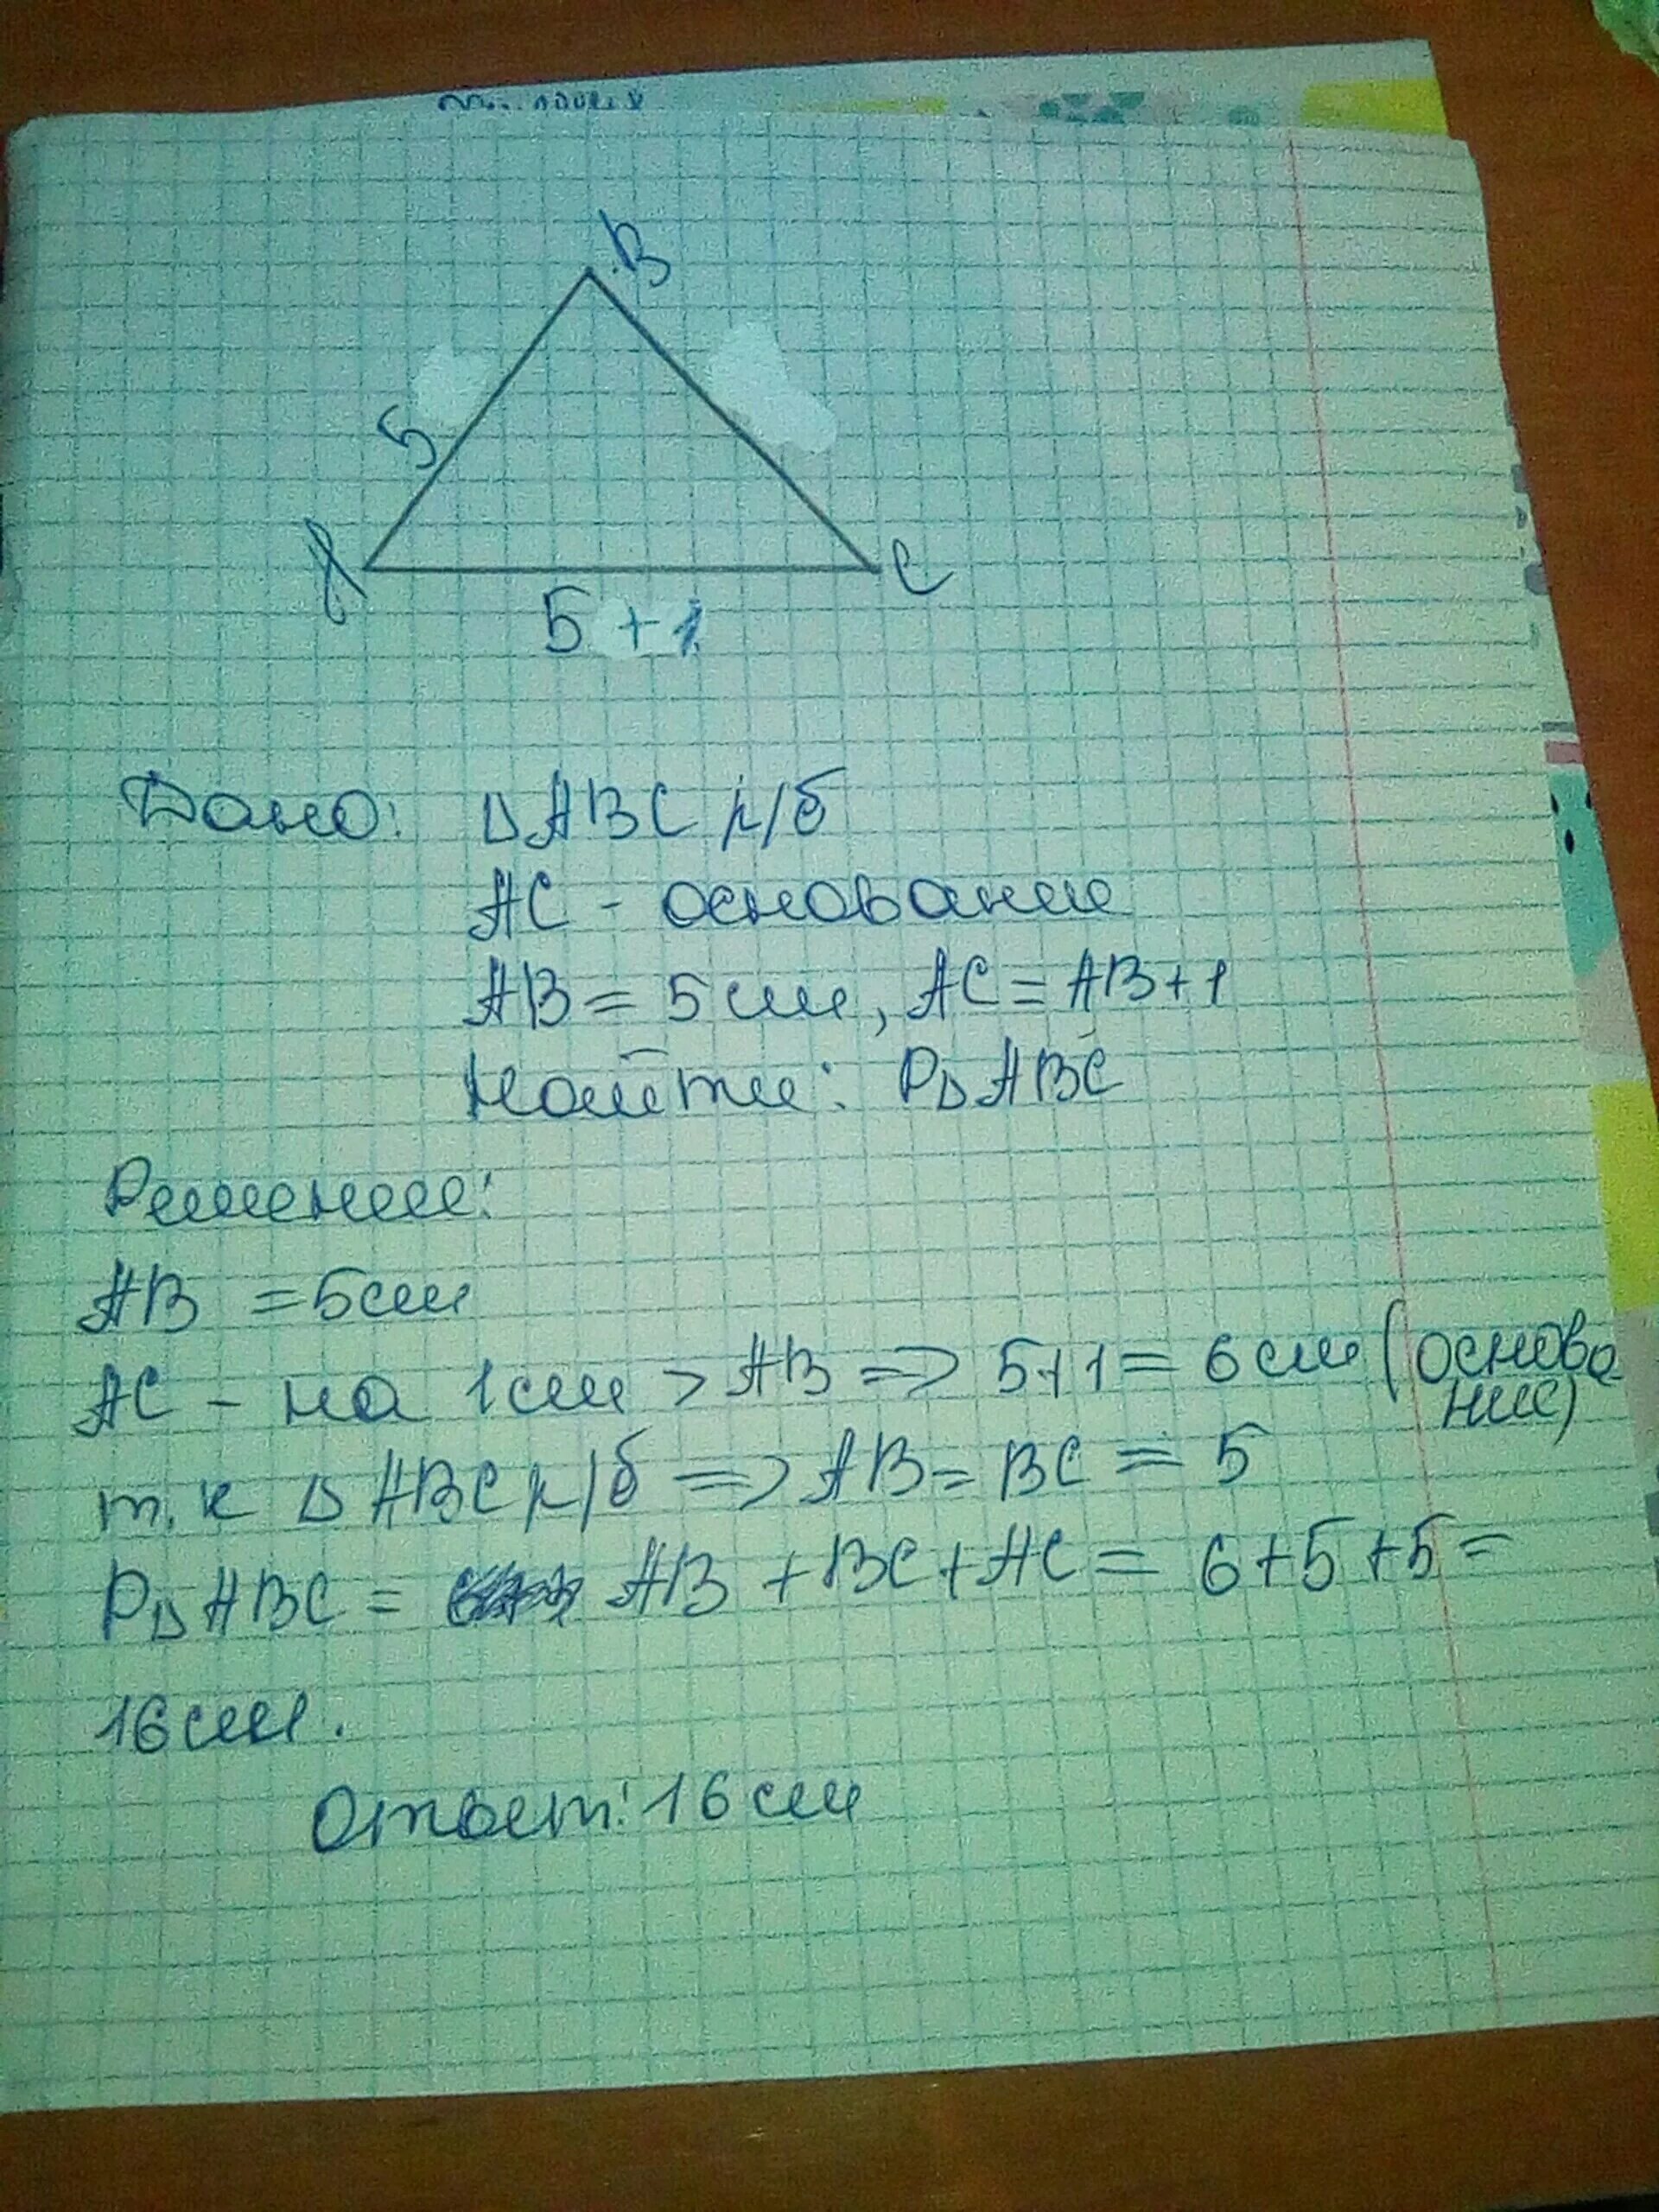 B
5
A
C
5 + 1
Дано: △ABC р/б
AC - основание
AB = 5 см, AC = AB+1
Найти: P△ABC
Решение:
AB = 5см
AC - на 1см > AB => 5+1 = 6 см (основа
ние)
т.к △ ABC р/б => AB = BC = 5
P△ABC = AB + BC + AC = 6+5+5=
16см.
Ответ: 16 см